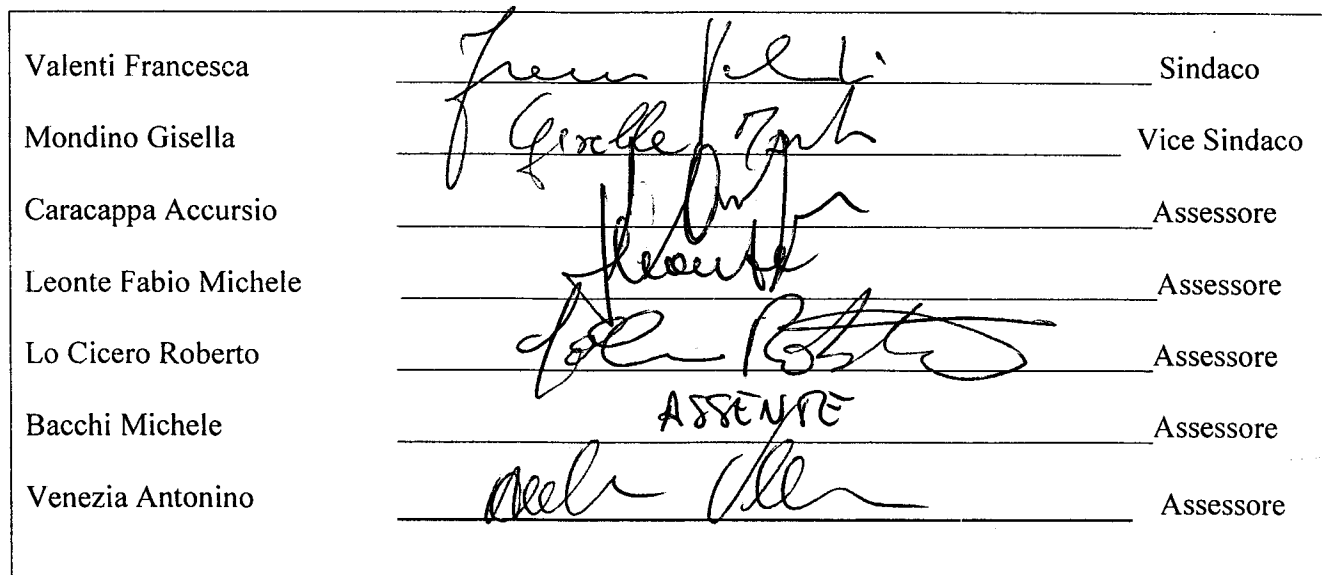 Valenti Francesca Sindaco
Mondino Gisella Gisella Vice Sindaco
Caracappa Accursio Assessore
Leonte Fabio Michele Leonte Assessore
Lo Cicero Roberto Assessore
Bacchi Michele ASSENTE Assessore
Venezia Antonino Assessore